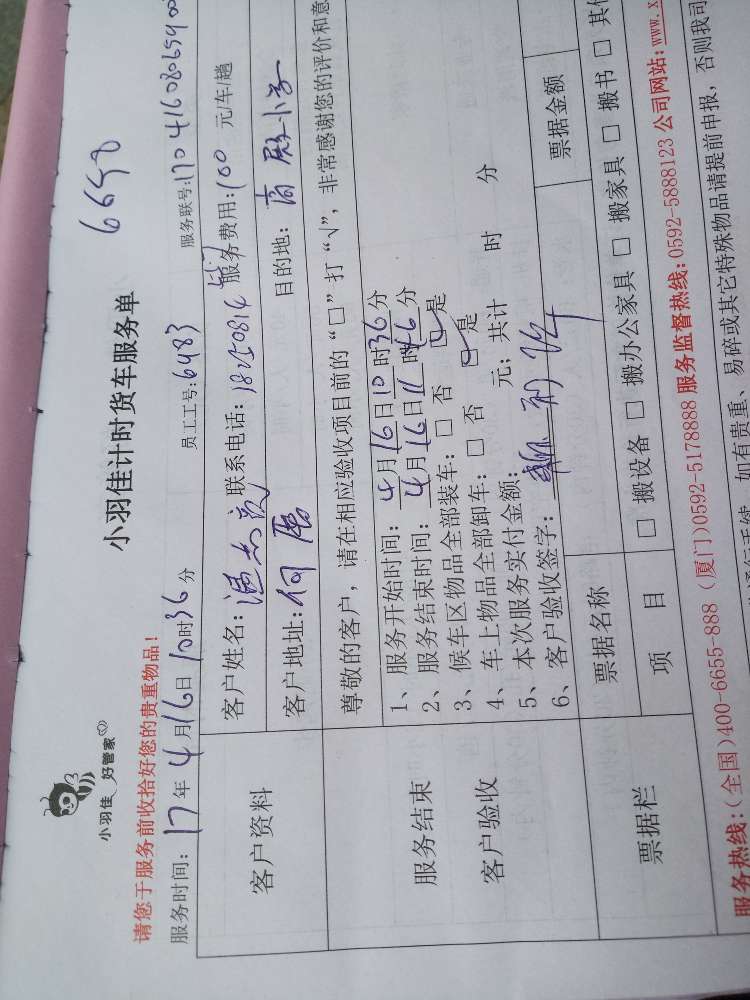 小羽佳 好管家
小羽佳计时货车服务单
6698
请您于服务前收拾好您的贵重物品!
服务时间: 17年4月16日10时36分 员工工号:6983 服务联号:170416080659
客户资料
客户姓名: 联系电话: 服务费用:100 元/车/趟
客户地址:何厝 目的地: 小学
尊敬的客户, 请在相应验收项目前的 “□” 打 “√”, 非常感谢您的评价和意
服务结束
客户验收
1、服务开始时间: 4月16日10时36分
2、服务结束时间: 4月16日11时46分
3、候车区物品全部装车: □ 否 □ 是
4、车上物品全部卸车: □ 否 □ 是
5、本次服务实付金额: 元; 共计 时 分
6、客户验收签字:
票据栏
票据名称 票据金额
项 目 □ 搬设备 □ 搬办公家具 □ 搬家具 □ 搬书 □ 其
服务热线:(全国)400-6655-888 (厦门)0592-5178888 服务监督热线:0592-5888123 公司网站: www.x
如有贵重、易碎或其它特殊物品请提前申报, 否则我司